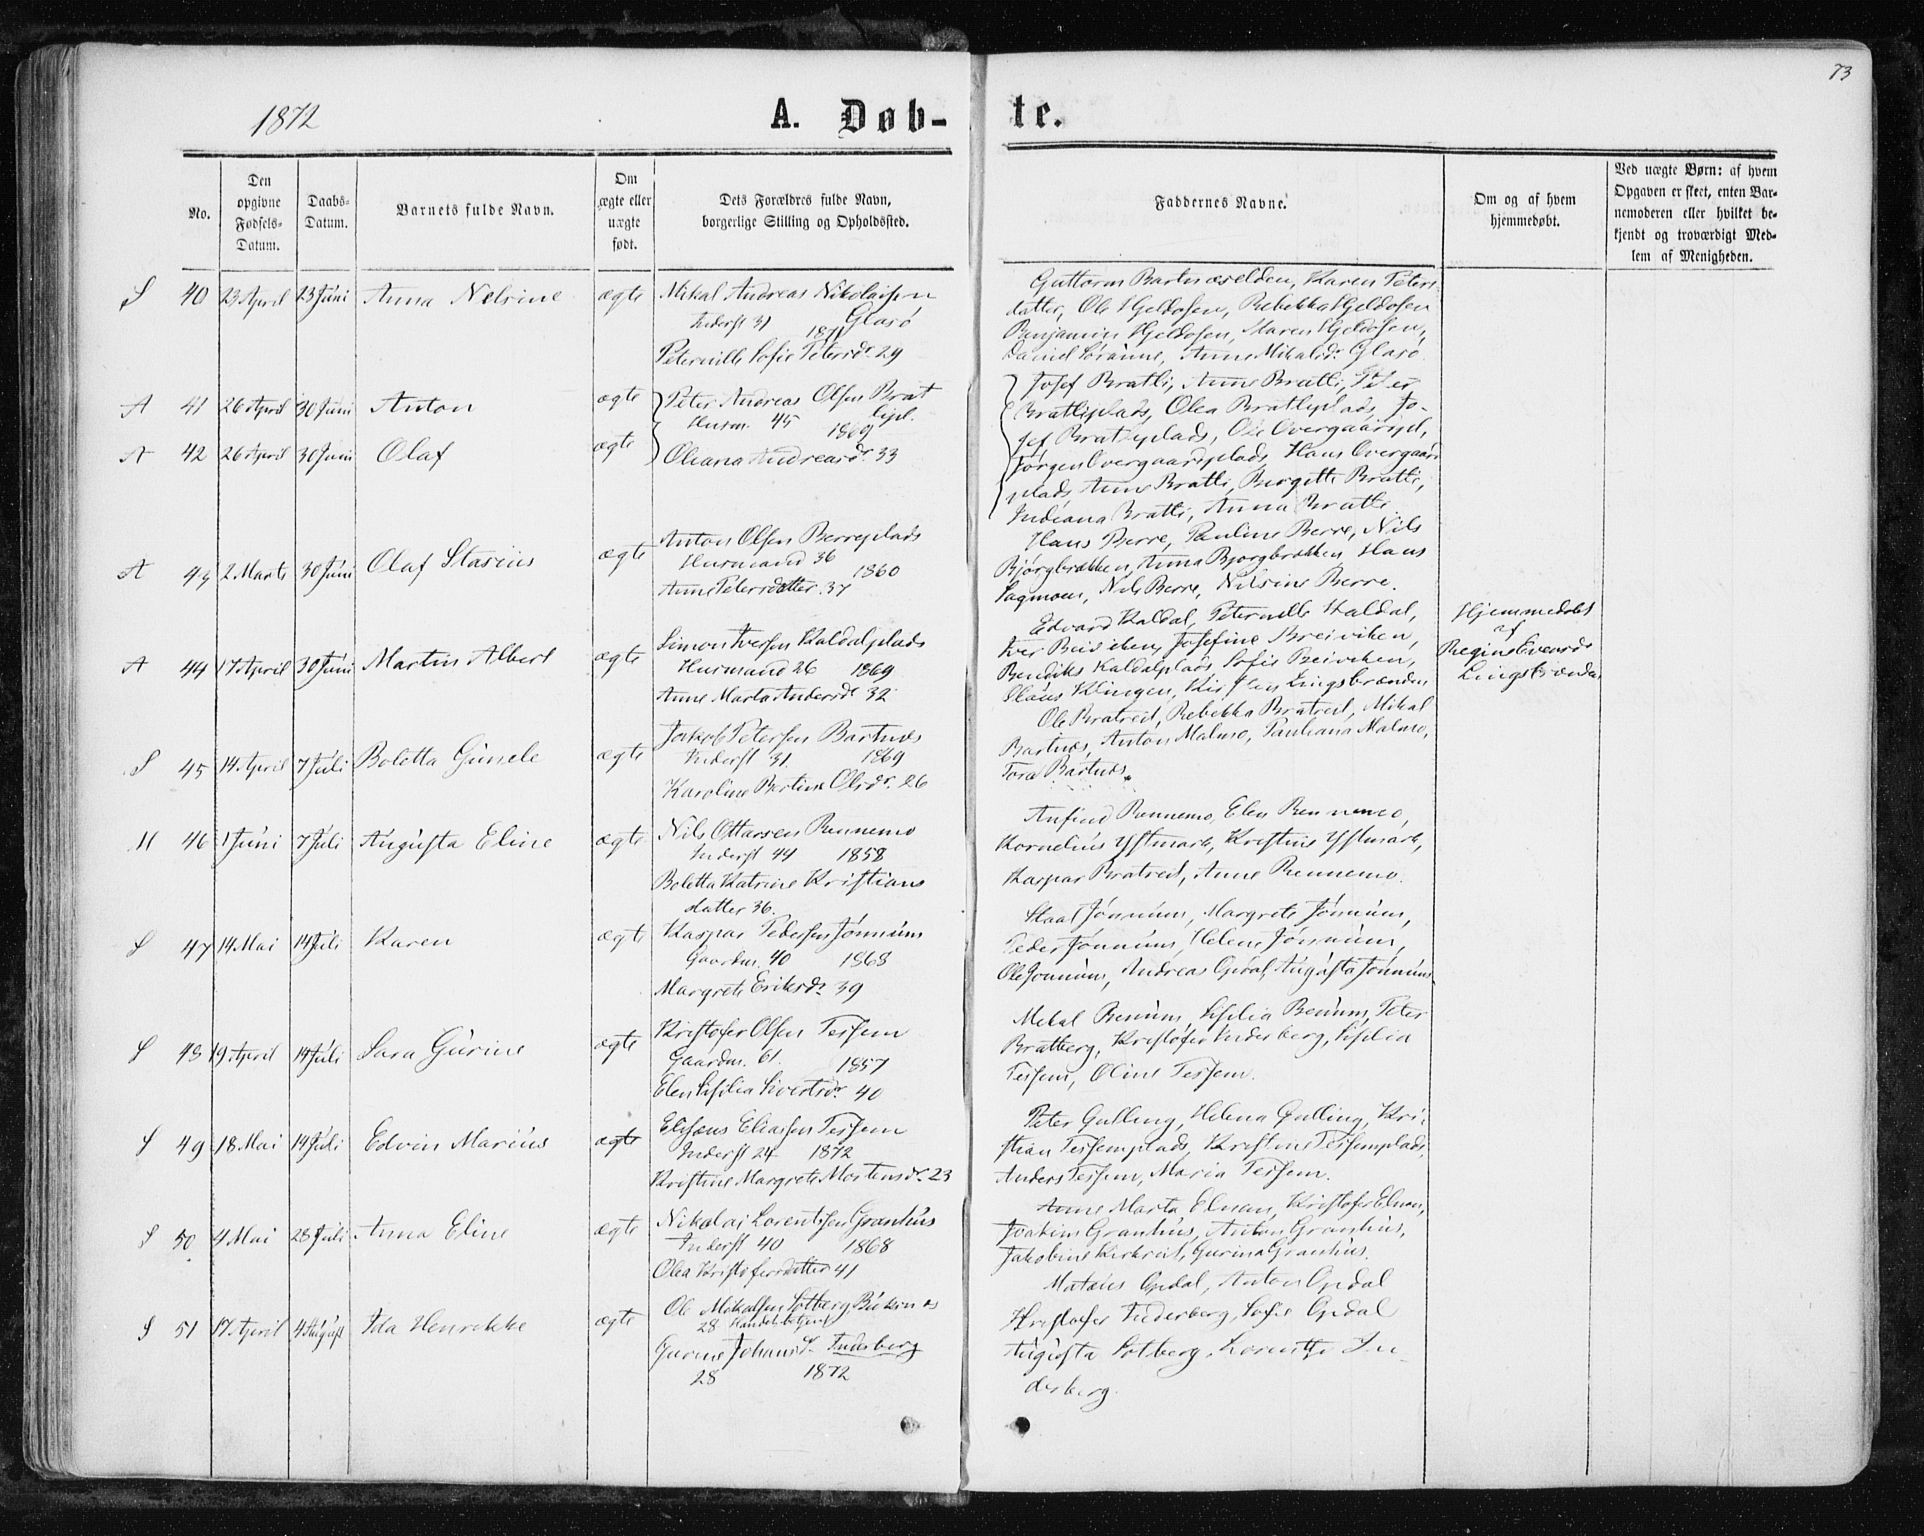 73
1872
A. Døb-
te.
No.
Den opgivne Fødsels-Datum.
Daabs-Datum.
Barnets fulde Navn.
Om ægte eller uægte født.
Dets Forældres fulde Navn, borgerlige Stilling og Opholdssted.
Faddernes Navne.
Om og af hvem hjemmedøbt.
Ved uægte Børn: af hvem Opgaven er skeet, enten Barnemoderen eller hvilket bekjendt og troværdigt Medlem af Menigheden.
S 40 23 April 23 Juni Anna Nelsine ægte Mikal Andreas Nikolaisen
Inderst 31 1871 Glasø
Peternille Sofie Petersdr 29
Guttorm Bartnæselden, Karen Peters
datter, Ole Hjeldosen, Rebekka Hjeldosen
Benjamin Hjeldosen, Maren Hjeldosen,
Daniel Sørinne, Anne Mikalsdr Glasø.
A 41 26 April 30 Juni Anton ægte Peter Andreas Olsen Brat
Husm. 45 1869 lipl.
A 42 26 April 30 Juni Olaf ægte Oleana Andreasdr 33
Josef Bratli, Anne Bratli, Peter
Bratliplads, Olea Bratliplads, Jo-
sef Bratliplads, Ole Overgaardpl,
Jørgen Overgaardsplads, Hans Overgaard
plads, Anne Bratli, Birgitte Bratli,
Indiana Bratli, Anna Bratli.
A 43 2 Marts 30 Juni Olaf Stasius ægte Anton Olsen Berreplads
Husmand 36 1860
Anne Petersdatter 37
Hans Berre, Pauline Berre, Nils
Bjørgbrakken, Anna Bjorgbrakken Hans
Sagmoen, Nils Berre, Nilsine Berre.
A 44 17 April 30 Juni Martin Albert ægte Simon Iversen Kaldalplads
Husmand 26 1869
Anne Marta Andersdr 32
Edvard Kaldal, Peternille Kaldal,
Iver Beiviken, Josefine Breiviken,
Bendiks Kaldalplads, Sofie Beiviken,
Olaus Klingen, Kirsten Lingsbrænden
Hjemmedøbt
af
Lingsbrænden
S 45 14 April 7 Juli Boletta Gunele ægte Jakob Petersen Bartnæs
Inderst 31. 1869
Karoline Bertine Olsdr. 26
Ole Bratreit, Rebekka Bratreit, Mikal
Bartnæs, Anton Malmo, Pauliana Malmo,
Tora Bartnæs.
M 46 1 Juni 7 Juli Augusta Eline ægte Nils Ottarsen Rennemo
Inderst 44 1858
Boletta Katrine Kristians
datter 36.
Anfind Rennemo, Elen Rennemo,
Kornelius Ystmark, Kristine Ystmark,
Kaspar Bratreit, Anne Rennemo.
S 47 14 Mai 14 Juli Karen ægte Kaspar Pedersen Jønnum
Gaardm. 40 1868
Margrete Eriksdr 39
Jønnum, Margrete Jønnum,
Peder Jønnum, Helene Jønnum,
Ole Jonnum, Andreas Opdal, Augusta Jønnum
S 48 19 April 14 Juli Sara Gurine ægte Kristofer Olsen Tessem
Gaardm. 61. 1857
Elen Sesilia Sivertsdr. 40
Mikal Benum, Sesilia Benum, Peter
Bratberg, Kristofer Inderberg, Sesilia
Tessem, Oline Tessem.
S 49 18 Mai 14 Juli Edvin Marius ægte Elisæus Eliassen Tessem
Inderst 24 1872
Kristine Margrete Mortensdr. 23
Peter Gulling, Helena Gulling, Kri-
stian Tessemplads, Kristine Tessemplads,
Anders Tessem, Maria Tessem.
S 50 4 Mai 28 Juli Anna Eline ægte Nikolai Lorentssen Granhus
Inderst 40 1868
Olea Kristofersdatter 41
Anne Marta Elnan, Kristofer Elnan,
Joakim Granhus, Anton Granhus,
Jakobine Kirkreit, Gurina Granhus.
S 51 17 April 4 August Ida Henrikke ægte Ole Mikalsen Solberg,
28 Handelsbetjent
Gurine Johansd. Inderberg
28 1872
Mataus Opdal, Anton Opdal
Kristofer Inderberg, Sofie Opdal
Augusta Solberg, Lorentse In-
derberg.